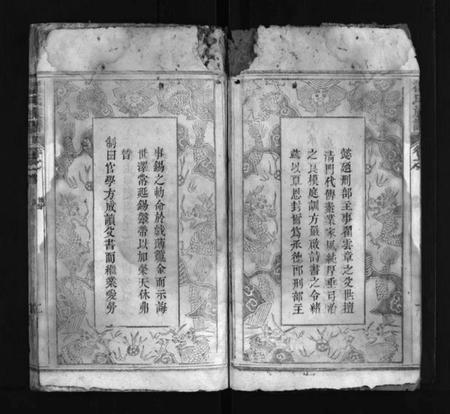 懿迺刑部主事瞿雲章之父世擅
清門代傳素業家風純厚垂弓冶
之良模庭訓方嚴啟詩書之令緒
茲以覃恩封爾為承德郎刑部主
事錫之勅命於戲薄籯金而示誨
世澤常延錫鞶帶以加榮天休弗
替
制曰官學方成讀父書而繼業愛勞